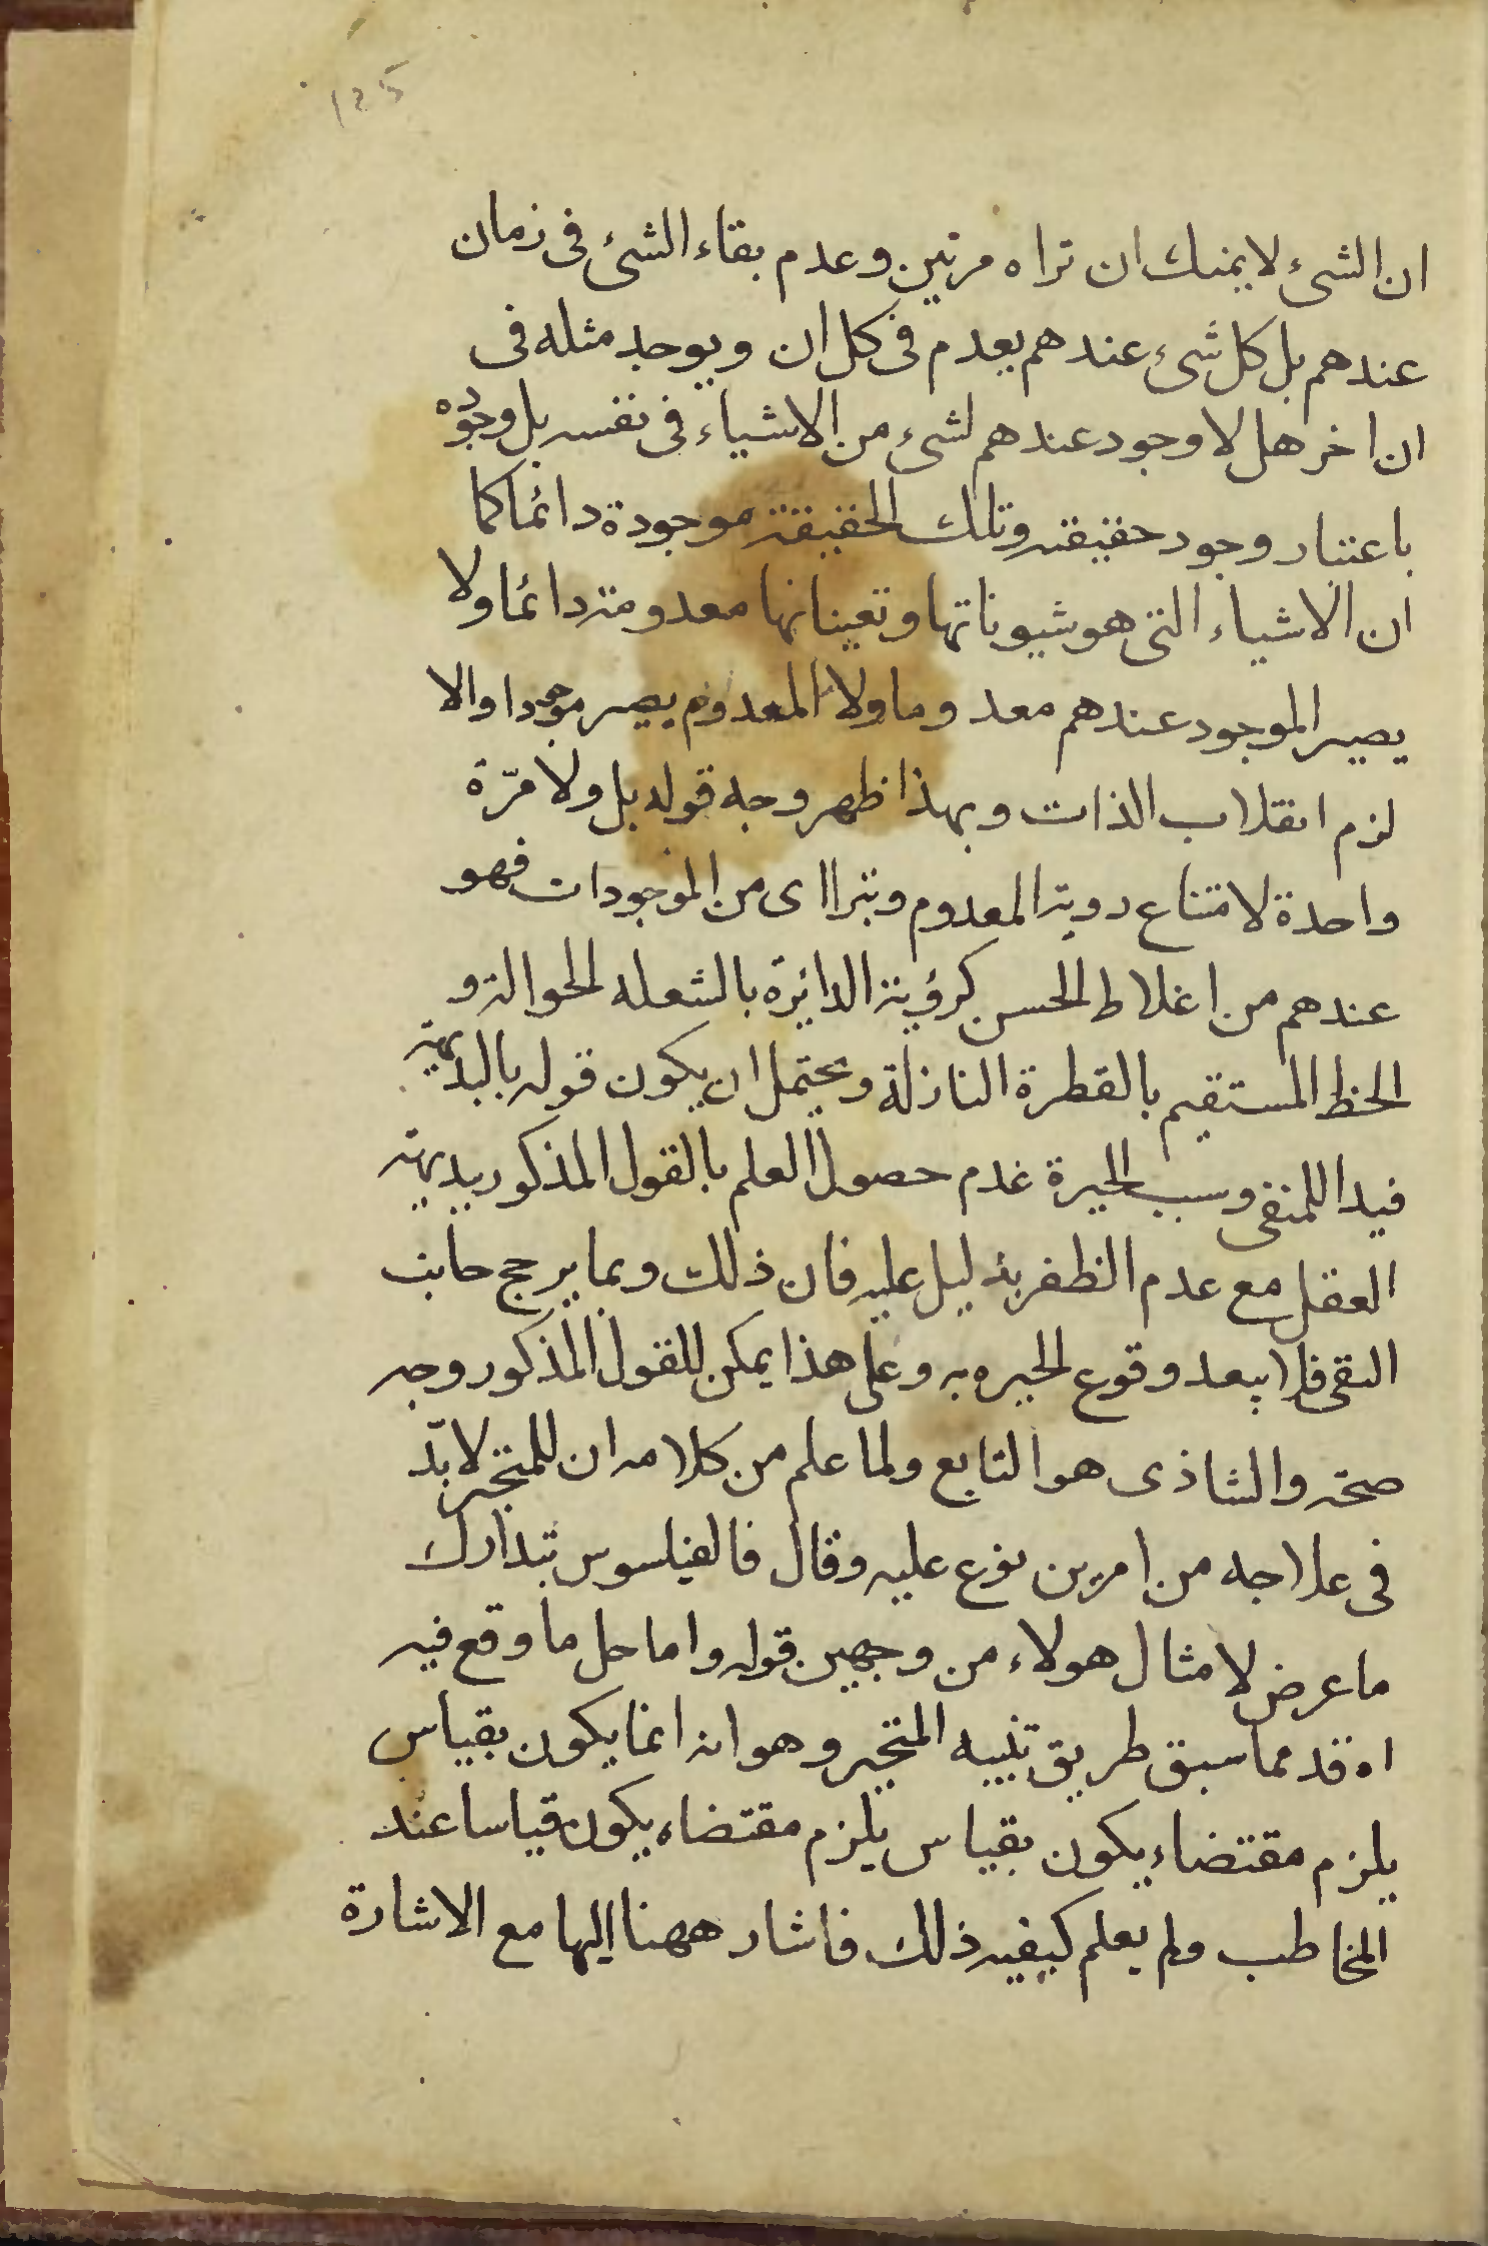 125
ان الشىء لا يمنك ان تراه مرتين وعدم بقاء الشئ فى زمان
عندهم بل كل شىء عندهم يعدم فى كل ان ويوجد مثله فى
ان اخر هل لا وجود عندهم لشىء من الاشياء فى نفسه بل وجوده
باعتبار وجود حقيقته وتلك الحقيقة موجودة دائما كما
ان الاشياء التى هو شيوناتها وتعيناتها معدومة دائما ولا
يصير الموجود عندهم معدوما ولا المعدوم يصير موجودا والا
لزم انقلاب الذات وبهذا ظهر وجه قوله بل ولا مرّة
واحدة لامتناع روية المعدوم ويتراأى من الموجودات فهو
عندهم من اغلاط الحسن كرؤية الدائرة بالشعله الحوالة و
الخط المستقيم بالقطرة النازلة ويحتمل ان يكون قوله بالبديهة
فيدا للمنفى وسبب الحيرة عدم حصول العلم بالقول المذكور ببديهة
العقل مع عدم الظفر بدليل عليه فان ذلك وبما يرجح جانب
النفى فلا يبعد وقوع الحيره به وعلى هذا يمكن للقول المذكور وجه
صحة والشاذى هو التابع ولما علم من كلامه ان للمتحير لا بدّ
فى علاجه من امرين نوع عليه وقال فالفيلسوس تبدارك
ما عرض لامثال هولاء من وجهين قوله واما حل ما وقع فيه
اه قد مما سبق طريق تنبيه المتحير وهو انه انما يكون بقياس
يلزم مقتضاء يكون بقياس يلزم مقتضاء يكون قياسا عند
المخاطب ولم يعلم كيفيه ذلك فاشار ههنا اليها مع الاشارة